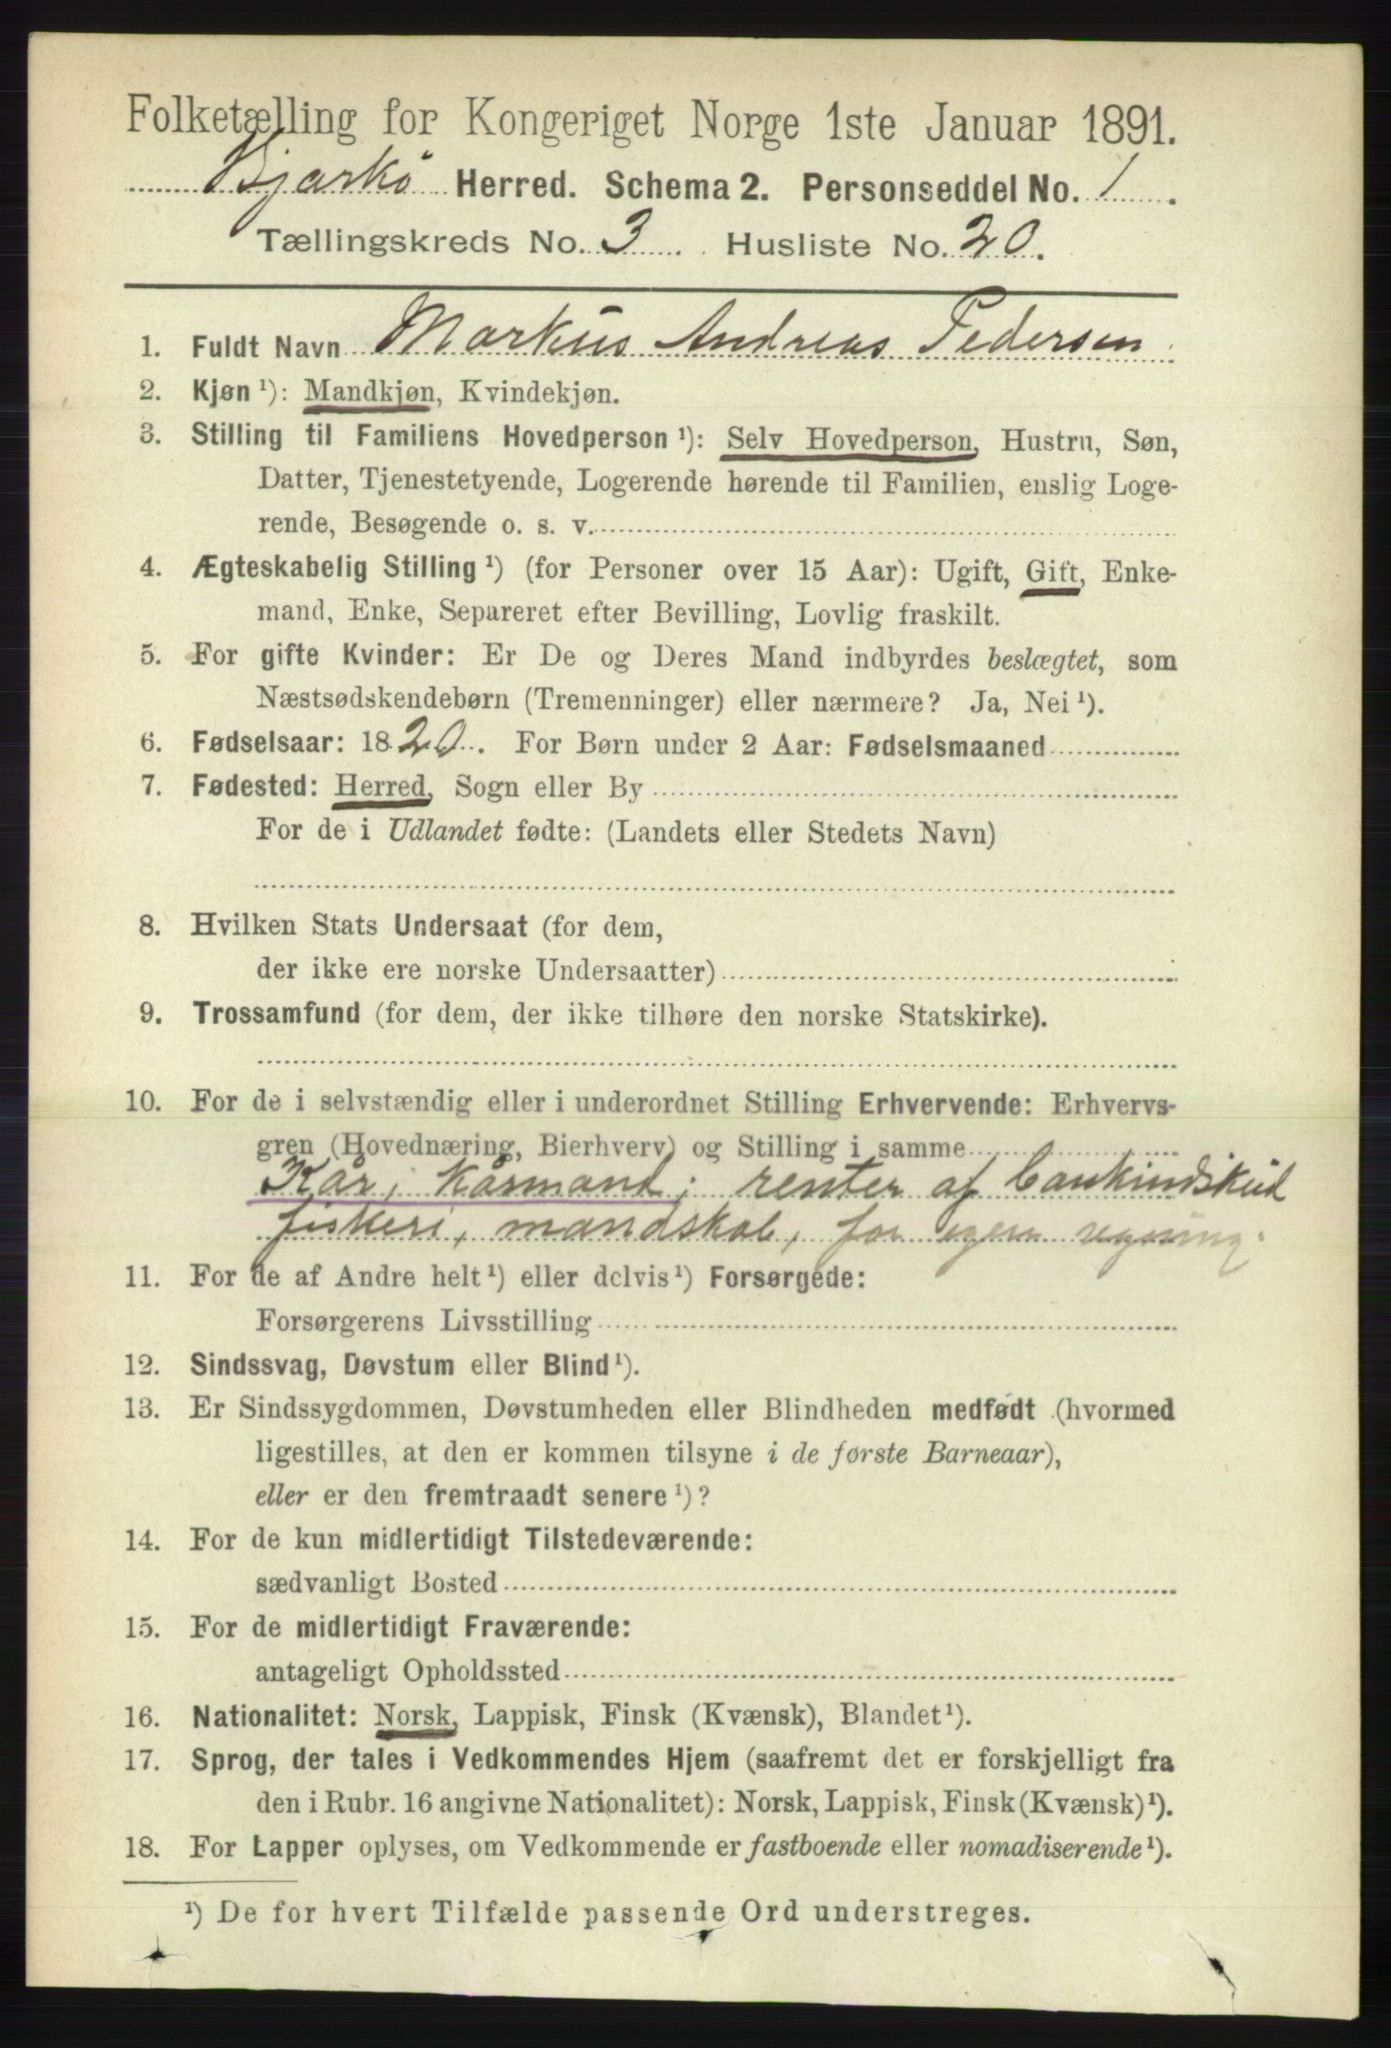 Folketælling for Kongeriget Norge 1ste Januar 1891.
Bjarkø Herred. Schema 2. Personseddel No. 1.
Tællingskreds No. 3. Husliste No. 20.
1. Fuldt Navn Markus Andreas Pedersen
2. Kjøn ¹): Mandkjøn, Kvindekjøn.
3. Stilling til Familiens Hovedperson ¹): Selv Hovedperson, Hustru, Søn,
Datter, Tjenestetyende, Logerende hørende til Familien, enslig Loge-
rende, Besøgende o. s. v.
4. Ægteskabelig Stilling ¹) (for Personer over 15 Aar): Ugift, Gift, Enke-
mand, Enke, Separeret efter Bevilling, Lovlig fraskilt.
5. For gifte Kvinder: Er De og Deres Mand indbyrdes beslægtet, som
Næstsødskendebørn (Tremenninger) eller nærmere? Ja, Nei ¹).
6. Fødselsaar: 1820. For Børn under 2 Aar: Fødselsmaaned
7. Fødested: Herred, Sogn eller By
For de i Udlandet fødte: (Landets eller Stedets Navn)
8. Hvilken Stats Undersaat (for dem,
der ikke ere norske Undersaatter)
9. Trossamfund (for dem, der ikke tilhøre den norske Statskirke).
10. For de i selvstændig eller i underordnet Stilling Erhvervende: Erhvervs-
gren (Hovednæring, Bierhverv) og Stilling i samme
Kår, kårmand; renter af bankindskud
fiskeri, mandskab, for egen regning.
11. For de af Andre helt ¹) eller delvis ¹) Forsørgede:
Forsørgerens Livsstilling
12. Sindssvag, Døvstum eller Blind ¹).
13. Er Sindssygdommen, Døvstumheden eller Blindheden medfødt (hvormed
ligestilles, at den er kommen tilsyne i de første Barneaar),
eller er den fremtraadt senere ¹)?
14. For de kun midlertidigt Tilstedeværende:
sædvanligt Bosted
15. For de midlertidigt Fraværende:
antageligt Opholdssted
16. Nationalitet: Norsk, Lappisk, Finsk (Kvænsk), Blandet ¹).
17. Sprog, der tales i Vedkommendes Hjem (saafremt det er forskjelligt fra
den i Rubr. 16 angivne Nationalitet): Norsk, Lappisk, Finsk (Kvænsk) ¹).
18. For Lapper oplyses, om Vedkommende er fastboende eller nomadiserende ¹).
¹) De for hvert Tilfælde passende Ord understreges.